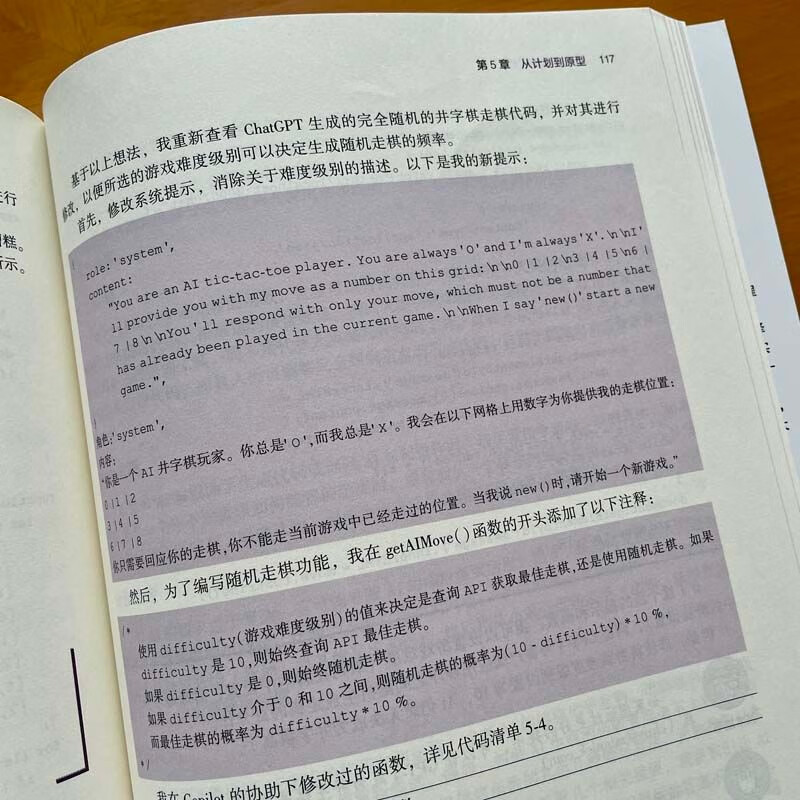 第5章 从计划到原型 117
基于以上想法，我重新查看 ChatGPT 生成的完全随机的井字棋走棋代码，并对其进行
修改，以便所选的游戏难度级别可以决定生成随机走棋的频率。
首先，修改系统提示，消除关于难度级别的描述。以下是我的新提示：
{
role:'system',
content:
"You are an AI tic-tac-toe player. You are always 'O' and I'm always 'X'. \n\nI'
ll provide you with my move as a number on this grid:\n\n0 |1 |2 \n3 |4 |5 \n6 |
7 |8 \n\nYou'll respond with only your move, which must not be a number that
has already been played in the current game. \n\nWhen I say 'new()' start a new
game.",
}
角色:'system',
内容:
"你是一个 AI 井字棋玩家。你总是'O',而我总是'X'。我会在以下网格上用数字为你提供我的走棋位置:
0 |1 |2
3 |4 |5
6 |7 |8
你只需要回应你的走棋,你不能走当前游戏中已经走过的位置。当我说 new()时,请开始一个新游戏。"
然后，为了编写随机走棋功能，我在 getAIMove()函数的开头添加了以下注释：
/*
使用 difficulty(游戏难度级别)的值来决定是查询 API 获取最佳走棋,还是使用随机走棋。如果
difficulty 是 10,则始终查询 API 最佳走棋。
如果 difficulty 是 0,则始终随机走棋。
如果 difficulty 介于 0 和 10 之间,则随机走棋的概率为(10 - difficulty) * 10 %,
而最佳走棋的概率为 difficulty * 10 %。
*/
我在 Copilot 的协助下修改过的函数，详见代码清单 5-4。